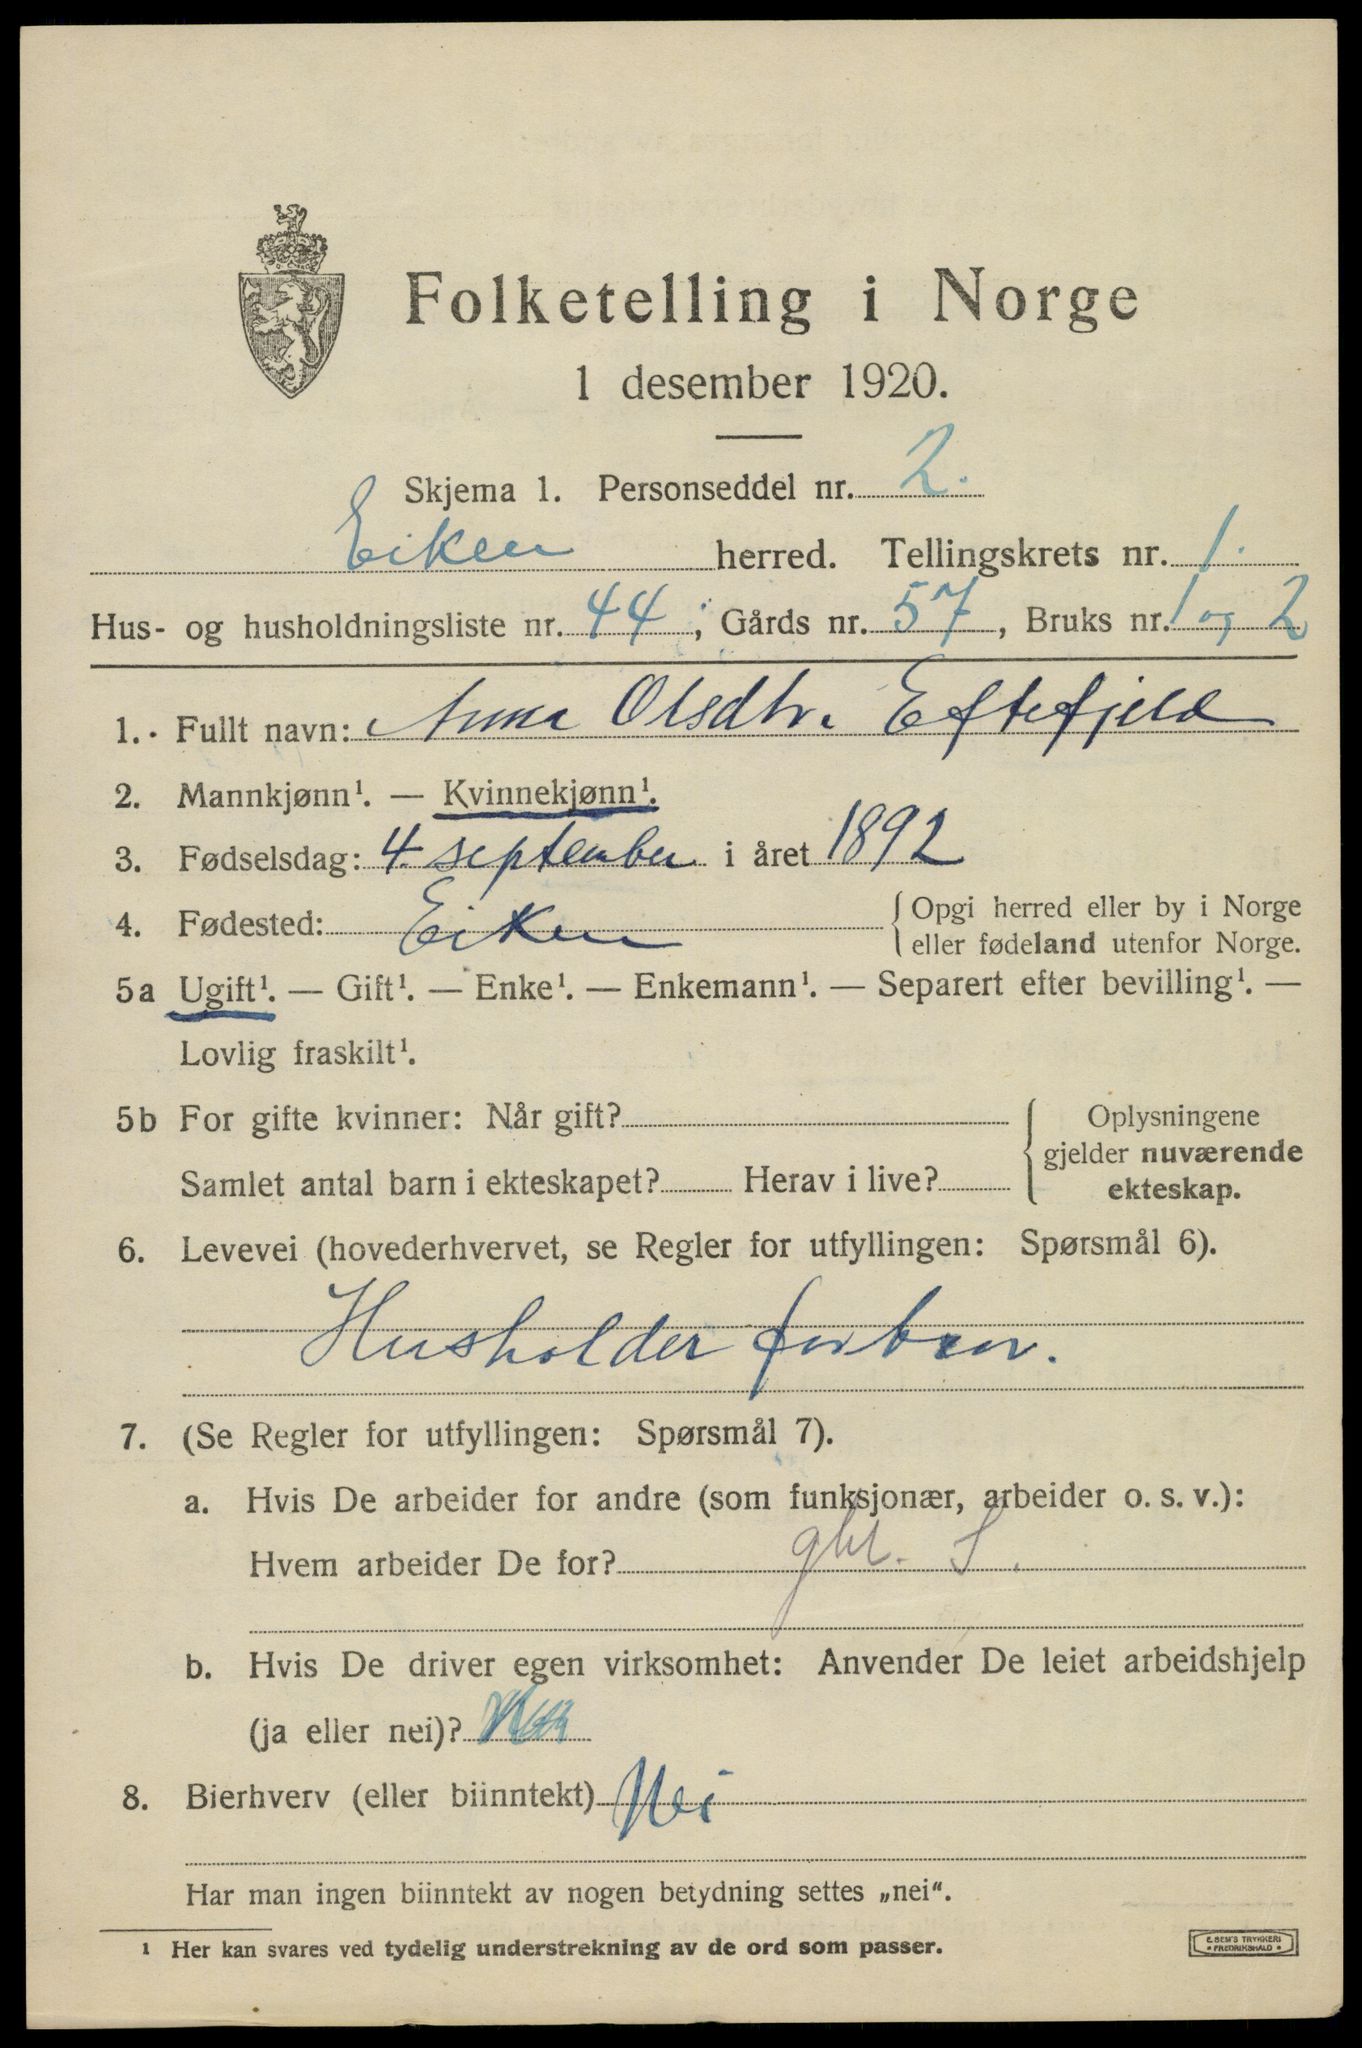 Folketelling i Norge
1 desember 1920.
Skjema 1. Personseddel nr. 2.
Eiken herred. Tellingskrets nr. 1.
Hus- og husholdningsliste nr. 44; Gårds nr. 57, Bruks nr. 1 og 2
1. Fullt navn: Anna Olsdtr. Eftefjeld
2. Mannkjønn¹. — Kvinnekjønn¹.
3. Fødselsdag: 4. september i året 1892
4. Fødested: Eiken { Opgi herred eller by i Norge
eller fødeland utenfor Norge.
5a Ugift¹. — Gift¹. — Enke¹. — Enkemann¹. — Separert efter bevilling¹. —
Lovlig fraskilt¹.
5b For gifte kvinner: Når gift? { Oplysningene
gjelder nuværende
Samlet antal barn i ekteskapet? Herav i live?
ekteskap.
6. Levevei (hovederhvervet, se Regler for utfyllingen: Spørsmål 6).
Husholder for bror.
7. (Se Regler for utfyllingen: Spørsmål 7).
a. Hvis De arbeider for andre (som funksjonær, arbeider o. s. v.):
Hvem arbeider De for?
b. Hvis De driver egen virksomhet: Anvender De leiet arbeidshjelp
(ja eller nei)?
8. Bierhverv (eller biinntekt) Nei
Har man ingen biinntekt av nogen betydning settes „nei“.
¹ Her kan svares ved tydelig understrekning av de ord som passer.
E. SEM'S TRYKKERI
• FREDRIKSHALD •